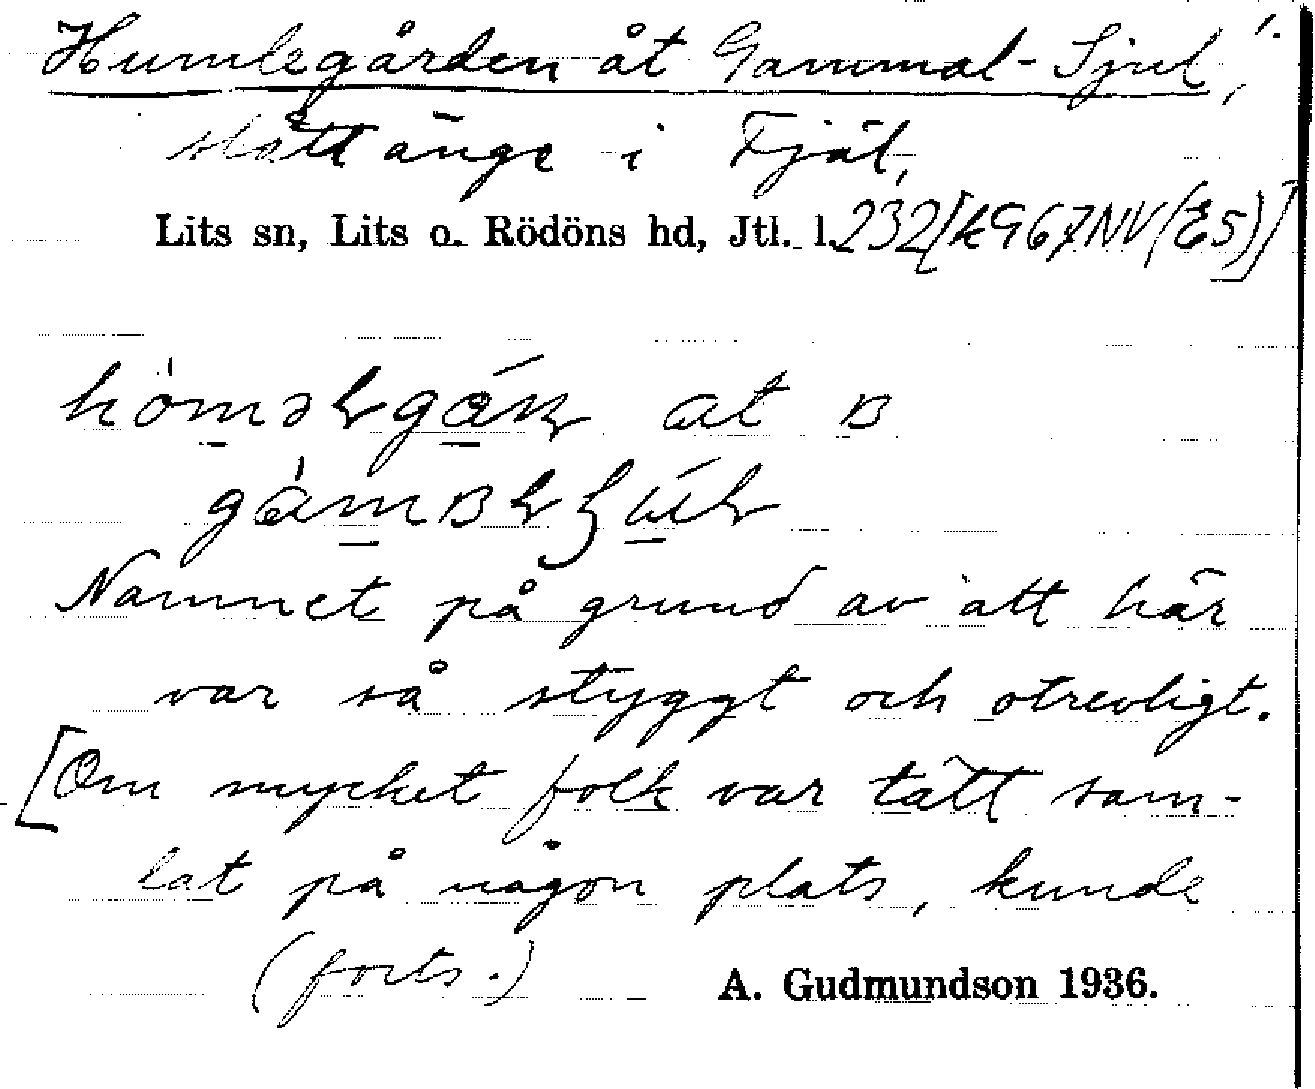 Humlegården åt Gammal-Sjul, 1.
slåttänge i Fjäl,
Lits sn, Lits o. Rödöns hd, Jtl. l. 232
at
Namnet på grund av att här
var så styggt och otrevligt.
[Om mycket folk var tätt sam-
lat på någon plats, kunde
(forts.)
A. Gudmundson 1936.